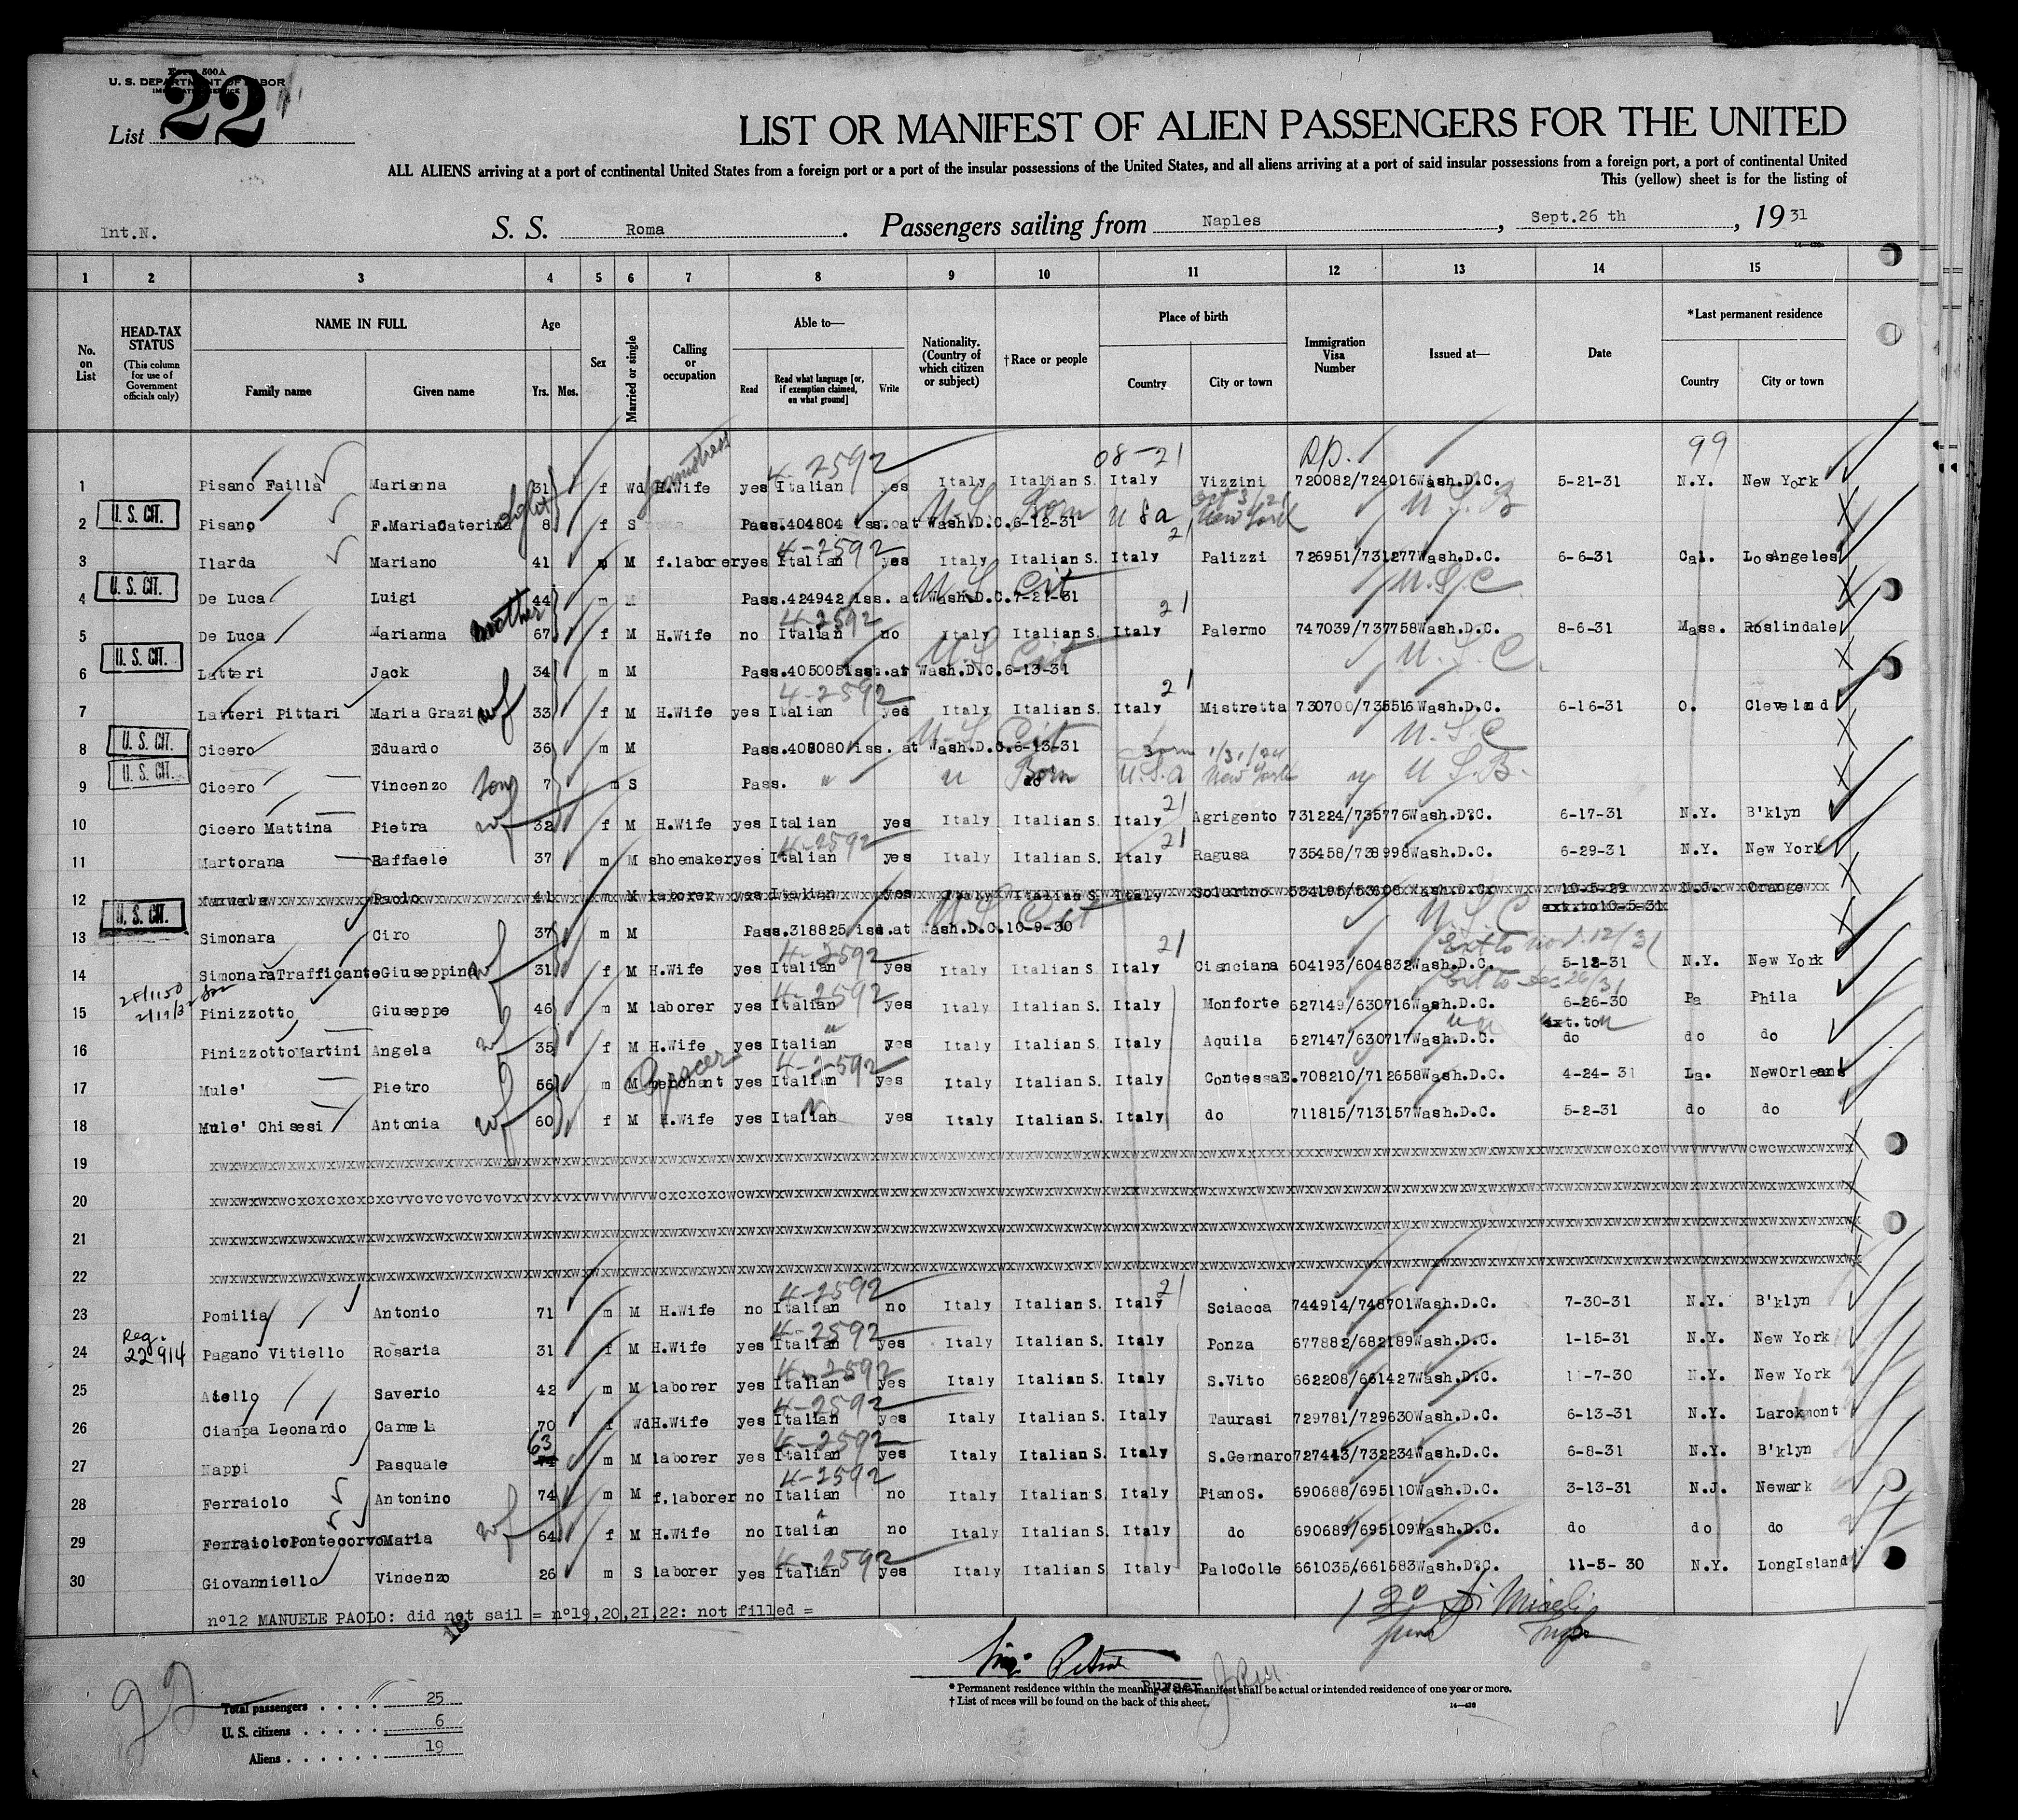 Form 500A
U. S. DEPARTMENT OF LABOR
IMMIGRATION SERVICE
List 22
LIST OR MANIFEST OF ALIEN PASSENGERS FOR THE UNITED
ALL ALIENS arriving at a port of continental United States from a foreign port or a port of the insular possessions of the United States, and all aliens arriving at a port of said insular possessions from a foreign port, a port of continental United
This (yellow) sheet is for the listing of
Int.N. S. S. Roma. Passengers sailing from Naples, Sept.26 th, 19 31
1 2 3 4 5 6 7 8 9 10 11 12 13 14 15
No. on List
HEAD-TAX STATUS (This column for use of Government officials only)
NAME IN FULL Family name Given name
Age Yrs. Mos.
Sex
Married or single
Calling or occupation
Able to— Read Read what language [or, if exemption claimed, on what ground] Write
Nationality. (Country of which citizen or subject)
†Race or people
Place of birth Country City or town
Immigration Visa Number
Issued at—
Date
*Last permanent residence Country City or town
08-21 99
seamstress 4-2592
1 Pisano Failla Marianna 31 f Wd H.Wife yes Italian yes Italy Italian S. Italy Vizzini 720082/724016 Wash.D.C. 5-21-31 N.Y. New York
U.S. Born U S a Oct 3/21 New York U S B
2 U. S. CIT. Pisano F.MariaCaterina dghtr 8 f S Pass.404804 iss. at Wash.D.C.6-12-31
4-2592 21
3 Ilarda Mariano 41 m M f.laborer yes Italian yes Italy Italian S. Italy Palizzi 726951/731277 Wash.D.C. 6-6-31 Cal. Los Angeles
U.S. Cit U.S.C.
4 U. S. CIT. De Luca Luigi 44 m M Pass.424942 iss. at Wash.D.C.7-21-31
4-2592 21
5 De Luca Marianna mother 67 f M H.Wife no Italian no Italy Italian S. Italy Palermo 747039/737758 Wash.D.C. 8-6-31 Mass. Roslindale
U.S. Cit U.S.C.
6 U. S. CIT. Latteri Jack 34 m M Pass.405005iss.at Wash.D.C.6-13-31
4-2592 21
7 Latteri Pittari Maria Grazi wf 33 f M H.Wife yes Italian yes Italy Italian S. Italy Mistretta 730700/735516 Wash.D.C. 6-16-31 O. Cleveland
U.S. Cit U.S.C
8 U. S. CIT. Cicero Eduardo 36 m M Pass.408080 iss. at Wash.D.C.6-13-31
Born U.S.A 1/31/24 New York U S B.
9 U. S. CIT. Cicero Vincenzo son 7 m S Pass. " " do
21
10 Cicero Mattina Pietra wf 32 f M H.Wife yes Italian yes Italy Italian S. Italy Agrigento 731224/735776 Wash.D?C. 6-17-31 N.Y. B'klyn
4-2592 21
11 Martorana Raffaele 37 m M shoemaker yes Italian yes Italy Italian S. Italy Ragusa 735458/738998 Wash.D.C. 6-29-31 N.Y. New York
12 Manuele Paolo 41 m M laborer yes Italian yes Italy Italian S. Italy Solarino Wash.D.C. 10-5-29 N.J. Orange
ext.to10-5-31
U.S Cit U.S C
13 U. S. CIT. Simonara Ciro 37 m M Pass.318825 iss.at Wash.D.C.10-9-30
4-2592 21 Ext to Nov. 12/31
14 SimonaraTrafficanteGiuseppina wf 31 f M H.Wife yes Italian yes Italy Italian S. Italy Cianciana 604193/604832 Wash.D.C. 5-12-31 N.Y. New York
4-2592 Ext to Dec 26/31
15 Pinizzotto Giuseppe 46 m M laborer yes Italian yes Italy Italian S. Italy Monforte 627149/630716 Wash.D.C. 6-26-30 Pa Phila
ext.to
16 PinizzottoMartini Angela wf 35 f M H.Wife yes Italian yes Italy Italian S. Italy Aquila 627147/630717 Wash.D.C. do do do
Grocer 4-2592
17 Mule' Pietro 66 m M merchant yes Italian yes Italy Italian S. Italy ContessaE. 708210/712658 Wash.D.C. 4-24-31 La. NewOrleans
18 Mule' Chisesi Antonia wf 60 f M H.Wife yes Italian yes Italy Italian S. Italy do 711815/713157 Wash.D.C. 5-2-31 do do
19
20
21
22
4-2592 21
23 Pomilia Antonio 71 m M H.Wife no Italian no Italy Italian S. Italy Sciacca 744914/748701 Wash.D.C. 7-30-31 N.Y. B'klyn
Reg. 22914 4-2592
24 Pagano Vitiello Rosaria 31 f M H.Wife yes Italian yes Italy Italian S. Italy Ponza 677882/682189 Wash.D.C. 1-15-31 N.Y. New York
4-2592
25 Aiello Saverio 42 m M laborer yes Italian yes Italy Italian S. Italy S.Vito 662208/661427 Wash.D.C. 11-7-30 N.Y. New York
4-2592
26 Ciampa Leonardo Carmela 70 f Wd H.Wife yes Italian yes Italy Italian S. Italy Taurasi 729781/729630 Wash.D.C. 6-13-31 N.Y. Larckmont
4-2592
27 Nappi Pasquale 63 m M laborer yes Italian yes Italy Italian S. Italy S.Gennaro 727443/732234 Wash.D.C. 6-8-31 N.Y. B'klyn
4-2592
28 Ferraiolo Antonino 74 m M f.laborer no Italian no Italy Italian S. Italy PianoS. 690688/695110 Wash.D.C. 3-13-31 N.J. Newark
29 FerraioloPontecorvoMaria wf 64 f M H.Wife no Italian no Italy Italian S. Italy do 690689/695109 Wash.D.C. do do do
4-2592
30 Giovanniello Vincenzo 26 m S laborer yes Italian yes Italy Italian S. Italy PaloColle 661035/661683 Wash.D?C. 11-5-30 N.Y. LongIsland
n°12 MANUELE PAOLO: did not sail = n°19,20,21,22: not filled =
18
Purser
* Permanent residence within the meaning of this manifest shall be actual or intended residence of one year or more.
† List of races will be found on the back of this sheet.
22
Total passengers . . . . 25
U. S. citizens . . . . . 6
Aliens . . . . . . 19